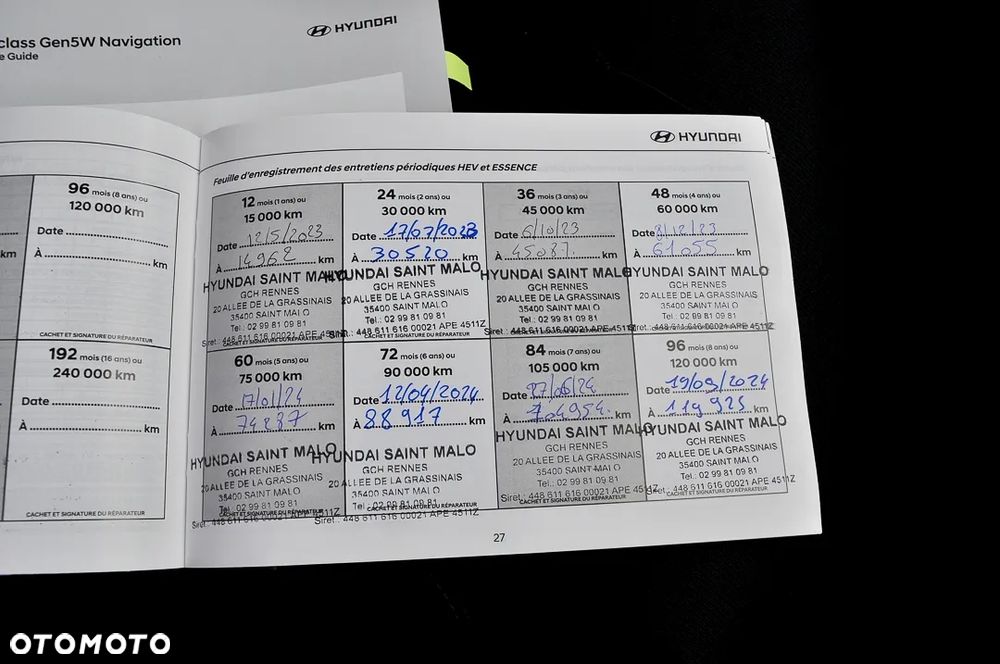 class Gen5W Navigation
e Guide
HYUNDAI
HYUNDAI
Feuille d'enregistrement des entretiens périodiques HEV et ESSENCE
96 mois (8 ans) ou
120 000 km
Date
À km
CACHET ET SIGNATURE DU RÉPARATEUR
192 mois (16 ans) ou
240 000 km
Date
À km
CACHET ET SIGNATURE DU RÉPARATEUR
km
12 mois (1 ans) ou
15 000 km
Date 12/5/2023
À 14962 km
HYUNDAI SAINT MALO
GCH RENNES
20 ALLEE DE LA GRASSINAIS
35400 SAINT MALO
Tel.: 02 99 81 09 81
Siret.: 448 611 616 00021 APE 4511Z
CACHET ET SIGNATURE DU RÉPARATEUR
24 mois (2 ans) ou
30 000 km
Date 17/07/2023
À 30520 km
HYUNDAI SAINT MALO
GCH RENNES
20 ALLEE DE LA GRASSINAIS
35400 SAINT MALO
Tel.: 02 99 81 09 81
Siret.: 448 611 616 00021 APE 4511Z
CACHET ET SIGNATURE DU RÉPARATEUR
36 mois (3 ans) ou
45 000 km
Date 6/10/23
À 45037 km
HYUNDAI SAINT MALO
GCH RENNES
20 ALLEE DE LA GRASSINAIS
35400 SAINT MALO
Tel.: 02 99 81 09 81
Siret.: 448 611 616 00021 APE 4511Z
48 mois (4 ans) ou
60 000 km
Date 8/12/23
À 61055 km
HYUNDAI SAINT MALO
GCH RENNES
20 ALLEE DE LA GRASSINAIS
35400 SAINT MALO
Tel.: 02 99 81 09 81
Siret.: 448 611 616 00021 APE 4511Z
60 mois (5 ans) ou
75 000 km
Date 17/01/24
À 74287 km
HYUNDAI SAINT MALO
GCH RENNES
20 ALLEE DE LA GRASSINAIS
35400 SAINT MALO
Tel.: 02 99 81 09 81
CACHET ET SIGNATURE DU RÉPARATEUR
Siret.: 448 611 616 00021 APE 4511Z
72 mois (6 ans) ou
90 000 km
Date 12/04/2024
À 88917 km
HYUNDAI SAINT MALO
GCH RENNES
20 ALLEE DE LA GRASSINAIS
35400 SAINT MALO
Tel.: 02 99 81 09 81
CACHET ET SIGNATURE DU RÉPARATEUR
Siret.: 448 611 616 00021 APE 4511Z
84 mois (7 ans) ou
105 000 km
Date 27/06/24
À 104954 km
HYUNDAI SAINT MALO
GCH RENNES
20 ALLEE DE LA GRASSINAIS
35400 SAINT MALO
Tel.: 02 99 81 09 81
Siret.: 448 611 616 00021 APE 4511Z
CACHET ET SIGNATURE DU RÉPARATEUR
96 mois (8 ans) ou
120 000 km
Date 19/09/2024
À 119925 km
HYUNDAI SAINT MALO
GCH RENNES
20 ALLEE DE LA GRASSINAIS
35400 SAINT MALO
Tel.: 02 99 81 09 81
Siret.: 448 611 616 00021 APE 4511Z
CACHET ET SIGNATURE DU RÉPARATEUR
27
OTOMOTO